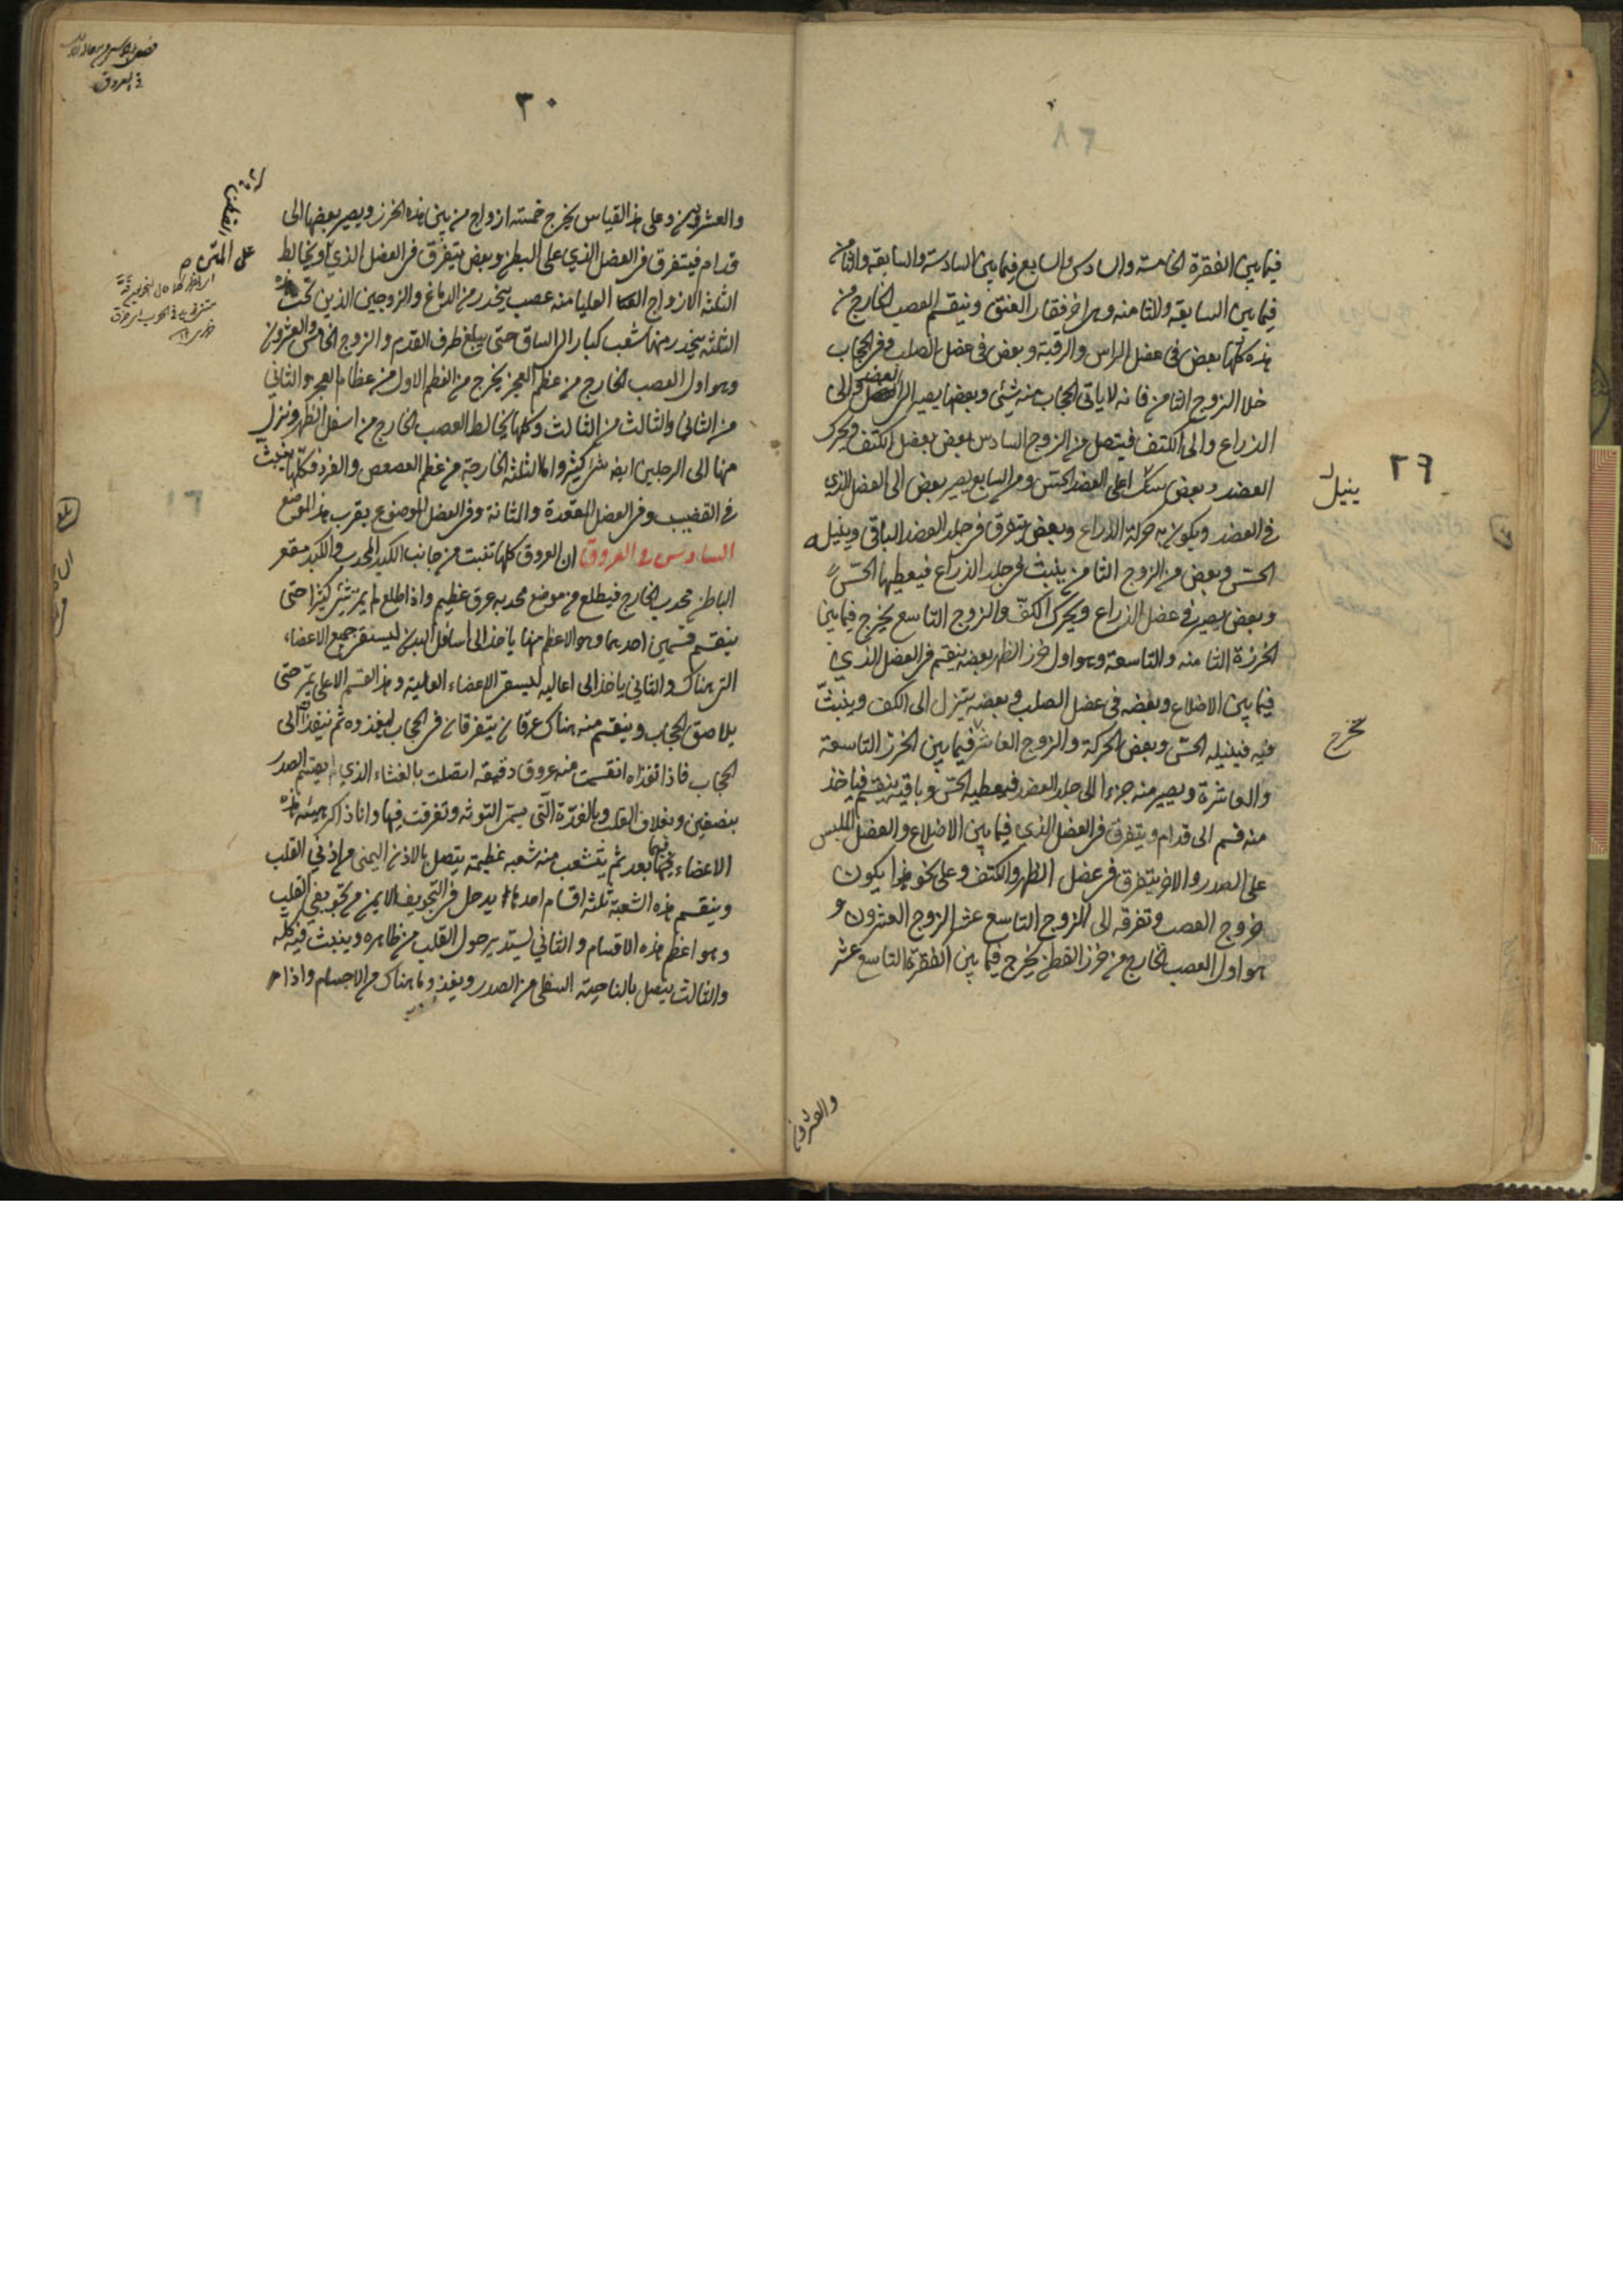 ٢٩
فيما بين الفقرة الخامسة والسادس والسابع فيما بين السادسة والسابعة والثامن
فيما بين السابعة والثامنة وهى اخر فقار العنق وينقسم العصب الخارج من
هذه كلها بعض فى عضل الراس والرقبة وبعض فى عضل الصلب وفى الحجاب
خلا الزوج الثامن فانه لا ياتى الحجاب منه شيئ وبعضها يصير الى العضد والى
الذراع والى الكتف فيتصل من الزوج السادس بعض بعضل الكتف ويحرك
العضد وبعض ينيل اعلى العضد الحس ومن السابع يصير بعض الى العضل الذي
فى العضد ويكون به حركة الذراع وبعض يتفرق فى جلد العضد الباقى وينيله
الحس وبعض من الزوج الثامن ينبث فى جلد الذراع فيعطيها الحس
وبعض يصير فى عضل الذراع ويحرك الكف والزوج التاسع يخرج فيما بين
الخرزة الثامنه والتاسعة وهو اول خرز الظهر بعضه ينقسم فى العضل الذي
فيما بين الاضلاع وبعضه فى عضل الصلب وبعضه يتنزل الى الكف وينبث
فيه فينيله الحس وبعض الحركة والزوج العاشر فيما بين الخرز التاسعة
والعاشرة ويصير منه جزء الى جلد العضد فيعطيه الحس وباقيه ينقسم فياخذ
منه قسم الى قدام ويتفرق فى العضل الذي فيما بين الاضلاع والعضل الملبس
على الصدر والاخر يتفرق فى عضل الظهر والكتف وعلى نحو هذا يكون
خروج العصب وتفرقه الى الزوج التاسع عشر الزوج العشرون و
هو اول العصب الخارج من خرز القطن يخرج فيما بين الفقرة التاسع عشر
ينيل
يخرج
والعشرون
٣٠
والعشرين وعلى هذا القياس يخرج خمسته ازواج من بين هذه الخرز ويصير بعضها الى
قدام فيتفرق فى العضل الذي على البطن وبعض يتفرق فى العضل الذي ويخالط
الثلثه الازواج العليا منه عصب ينحدر من الدماغ والزوجين الذين تحت هذه
الثلثه ينحدر منها شعب كبار الى الساق حتى يبلغ طرف القدم والزوج الخامس والعشرون
وهو اول العصب الخارج من عظم العجز يخرج من العظم الاول من عظام العجز والثاني
من الثانى والثالث من الثالث وكلها يخالط العصب الخارج من اسفل الظهر وينزل
منها الى الرجلين ايضه شئ كثير واما الثلثه الخارجة من عظم العصعص والفرد فكلها ينبث
فى القضيب وفى العضل المقعدة والمثانة وفى العضل الموضوع بقرب هذا الموضع
السادس فى العروق ان العروق كلها تنبت من جانب الكبد المحدب والكبد مقعر
الباطن محدب الخارج فيطلع من موضع محدبه عرق عظيم واذا طلع لم يمر شئ كثيرا حتى
ينقسم قسمين احديهما وهو الاعظم منها ياخذ الى اسافل البدن ليسقى جميع الاعضاء
التى هناك والثاني ياخذ الى اعاليه ليسقى الاعضاء العالية وهذا القسم الاعلى يمر حتى
يلاصق الحجاب وينقسم منه هناك عرقان يتفرقان فى الحجاب ليغذوه ثم ينفذ الى
الحجاب فاذا نفذاه انقسمت منه عروق دقيقه اتصلت بالغشاء الذي يقسم الصدر
بنصفين وبغلاف القلب وبالغدة التى يسمى التوثه وتفرقت فيها وانا ذاكر هيئة هذه
الاعضاء فيما بعد ثم يتشعب منه شعبه عظيمة يتصل بالاذن اليمنى من اذني القلب
وينقسم هذه الشعبة ثلثه اقسام احدها يدخل فى التجويف الايمن من تجويفي القلب
وهو اعظم هذه الاقسام والثانى يستدير حول القلب من ظاهره وينبث فيه كله
والثالث يتصل بالناحية السفلى من الصدر ويغذو ما هناك من الاجسام واذا م
على المتن ص